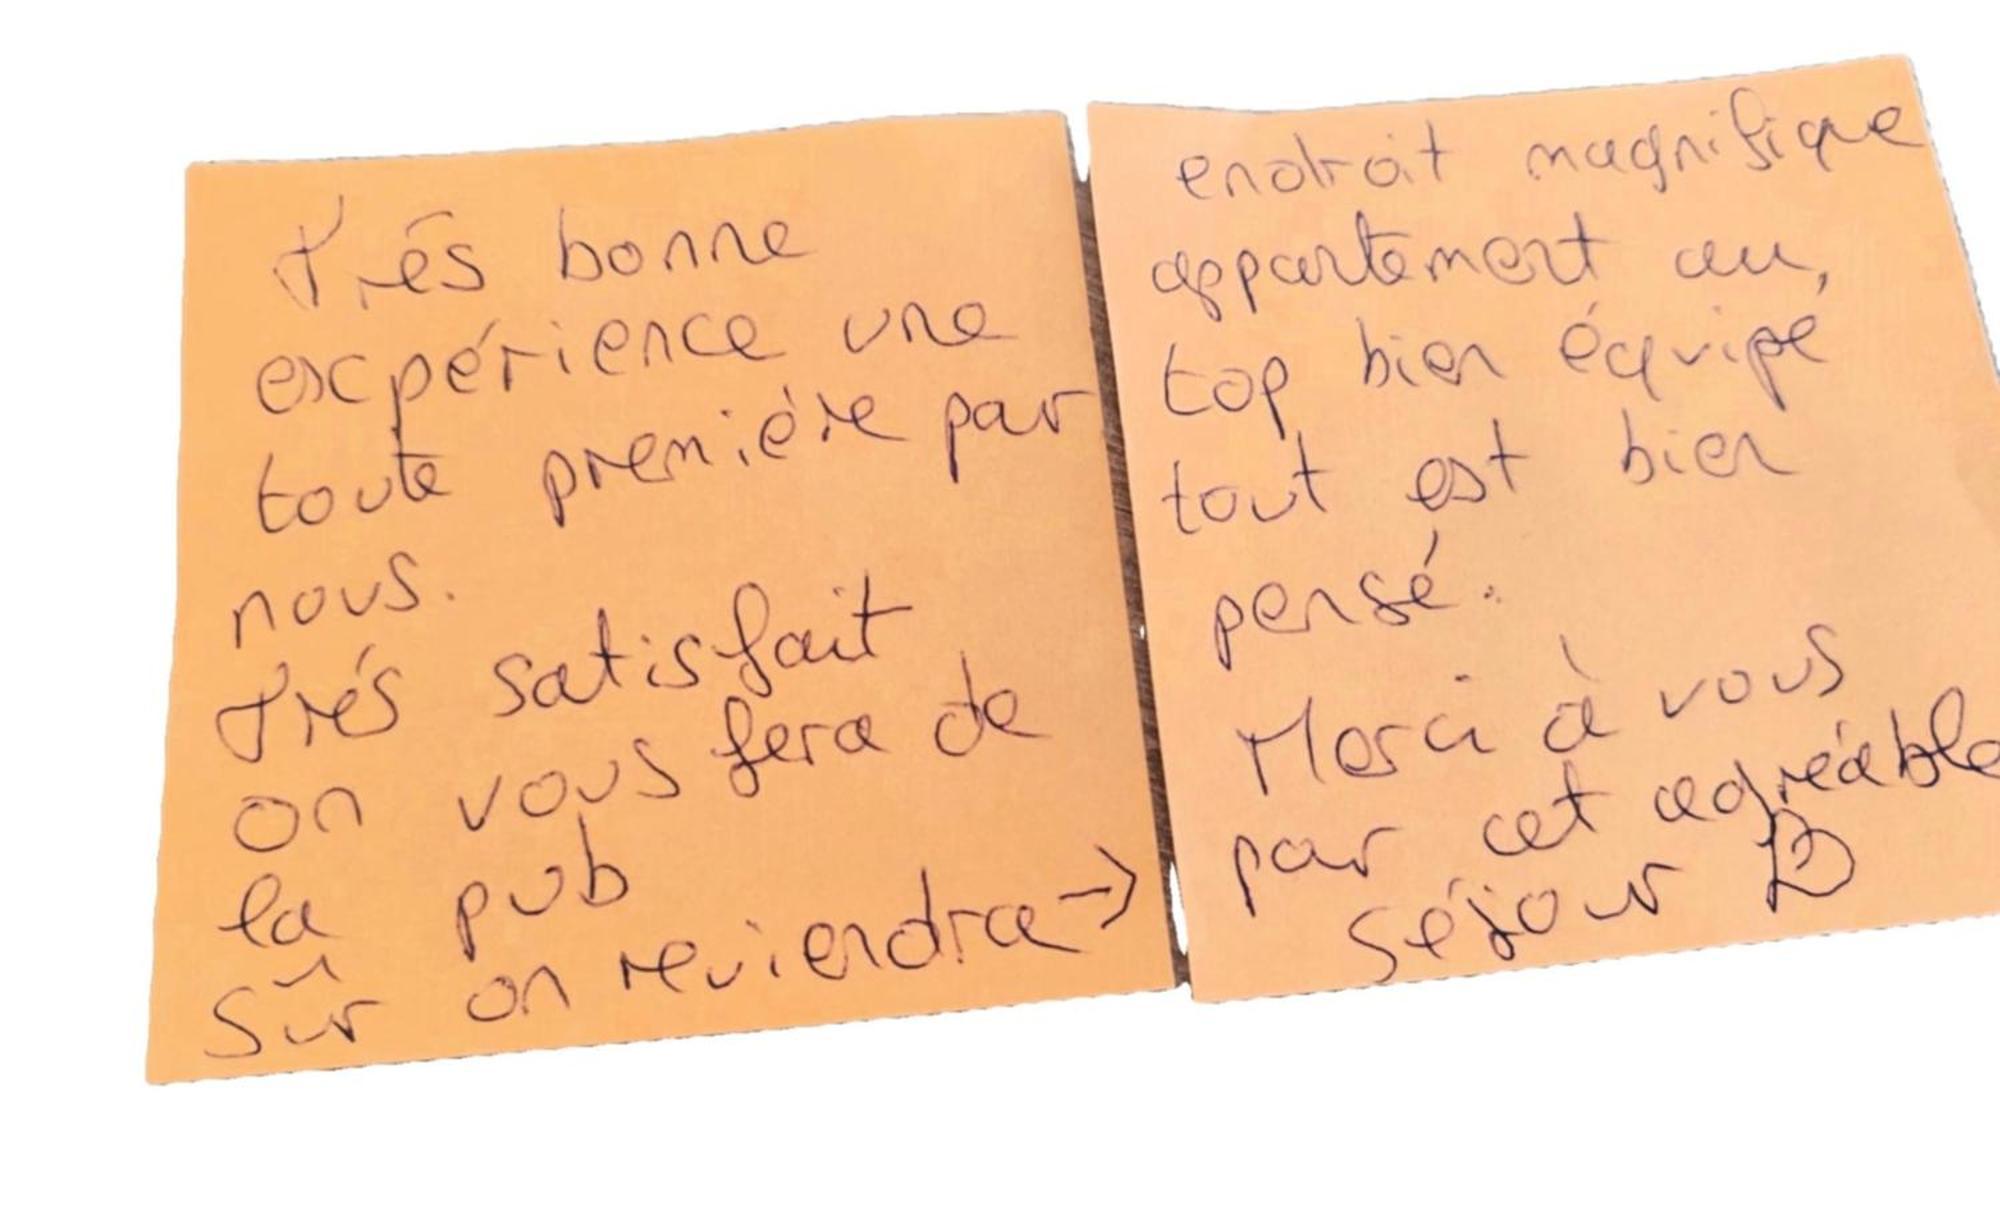 Trés bonne
expérience une
toute premiére par
nous.
trés satisfait
on vous fera de
la pub
Sûr on reviendra →
endroit magnifique
appartement au,
top bien équipé
tout est bien
pensé.
Merci à vous
par cet agréable
séjour